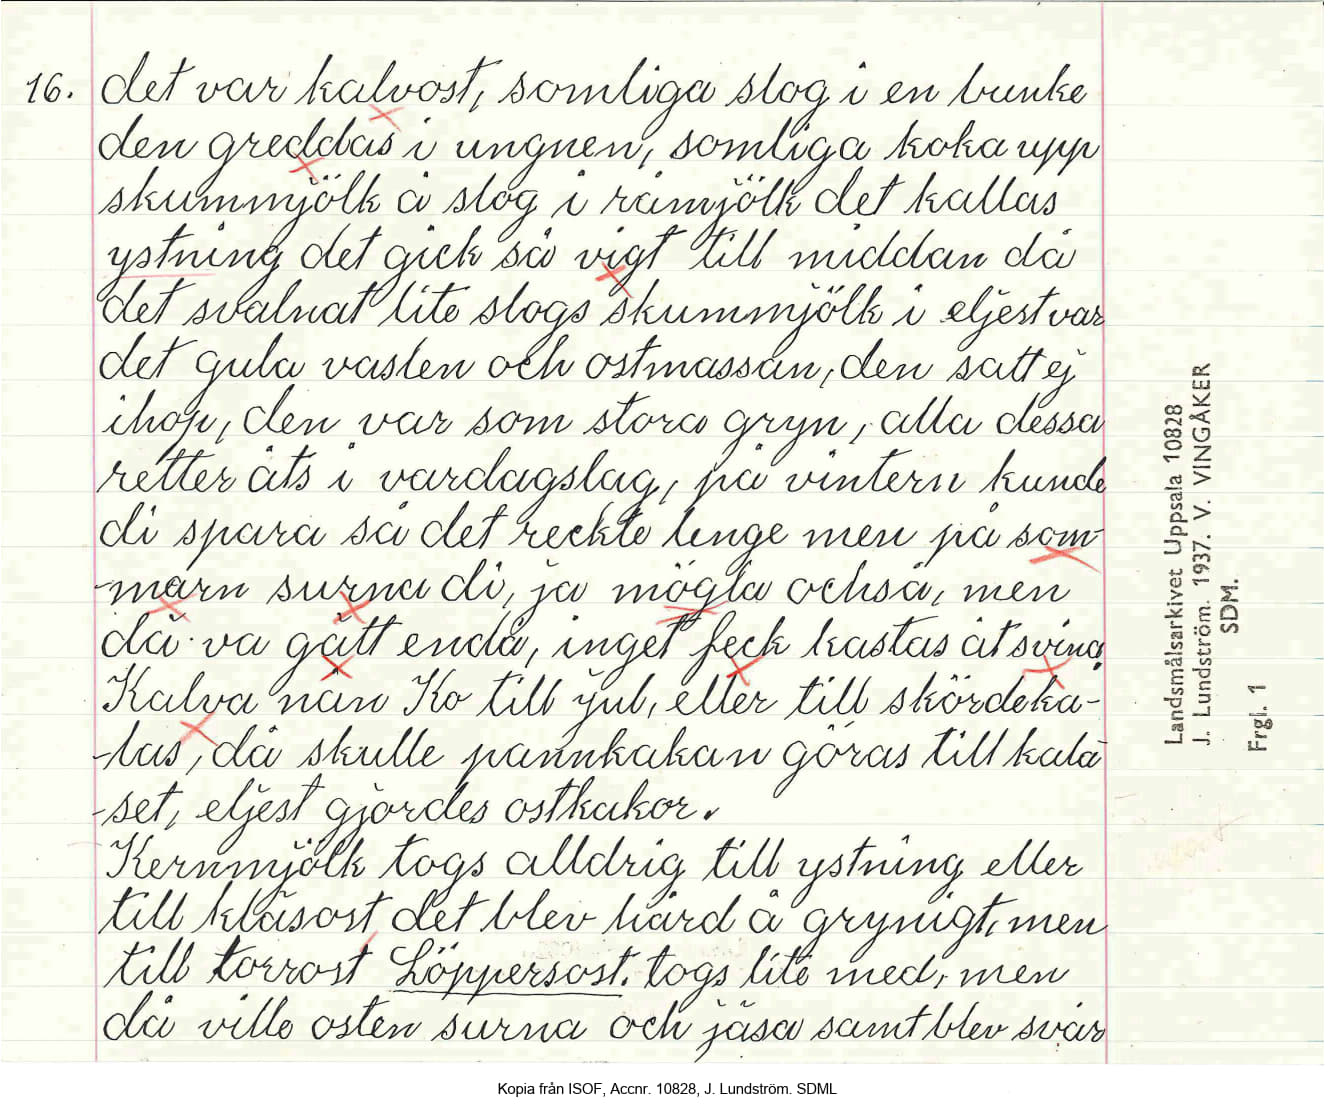 16. det var kalvost, somliga slog i en bunke
den greddas i ungnen, somliga koka upp
skummjölk å slog i råmjölk det kallas
ystning det gick så vigt till middan då
det svalnat lite slogs skummjölk i eljest var
det gula vaslen och ostmassan, den satt ej
ihop, den var som stora gryn, alla dessa
retter åts i vardagslag, på vintern kunde
di spara så det reckte lenge men på som-
-marn surna di, ja mögla också, men
då va gått endå, inget feck kastas åt svina,
Kalva nån Ko till jul, eller till skördeka-
-las, då skulle pannkakan göras till kala
-set, eljest gjordes ostkakor.
Kernmjölk togs alldrig till ystning eller
till kläsost det blev hård å grynigt, men
till torrost Löppersost. togs lite med, men
då ville osten surna och jäsa samt blev svår
Landsmålsarkivet Uppsala 10828
J. Lundström. 1937. V. VINGÅKER
SDM.
Frgl. 1
Kopia från ISOF, Accnr. 10828, J. Lundström. SDML